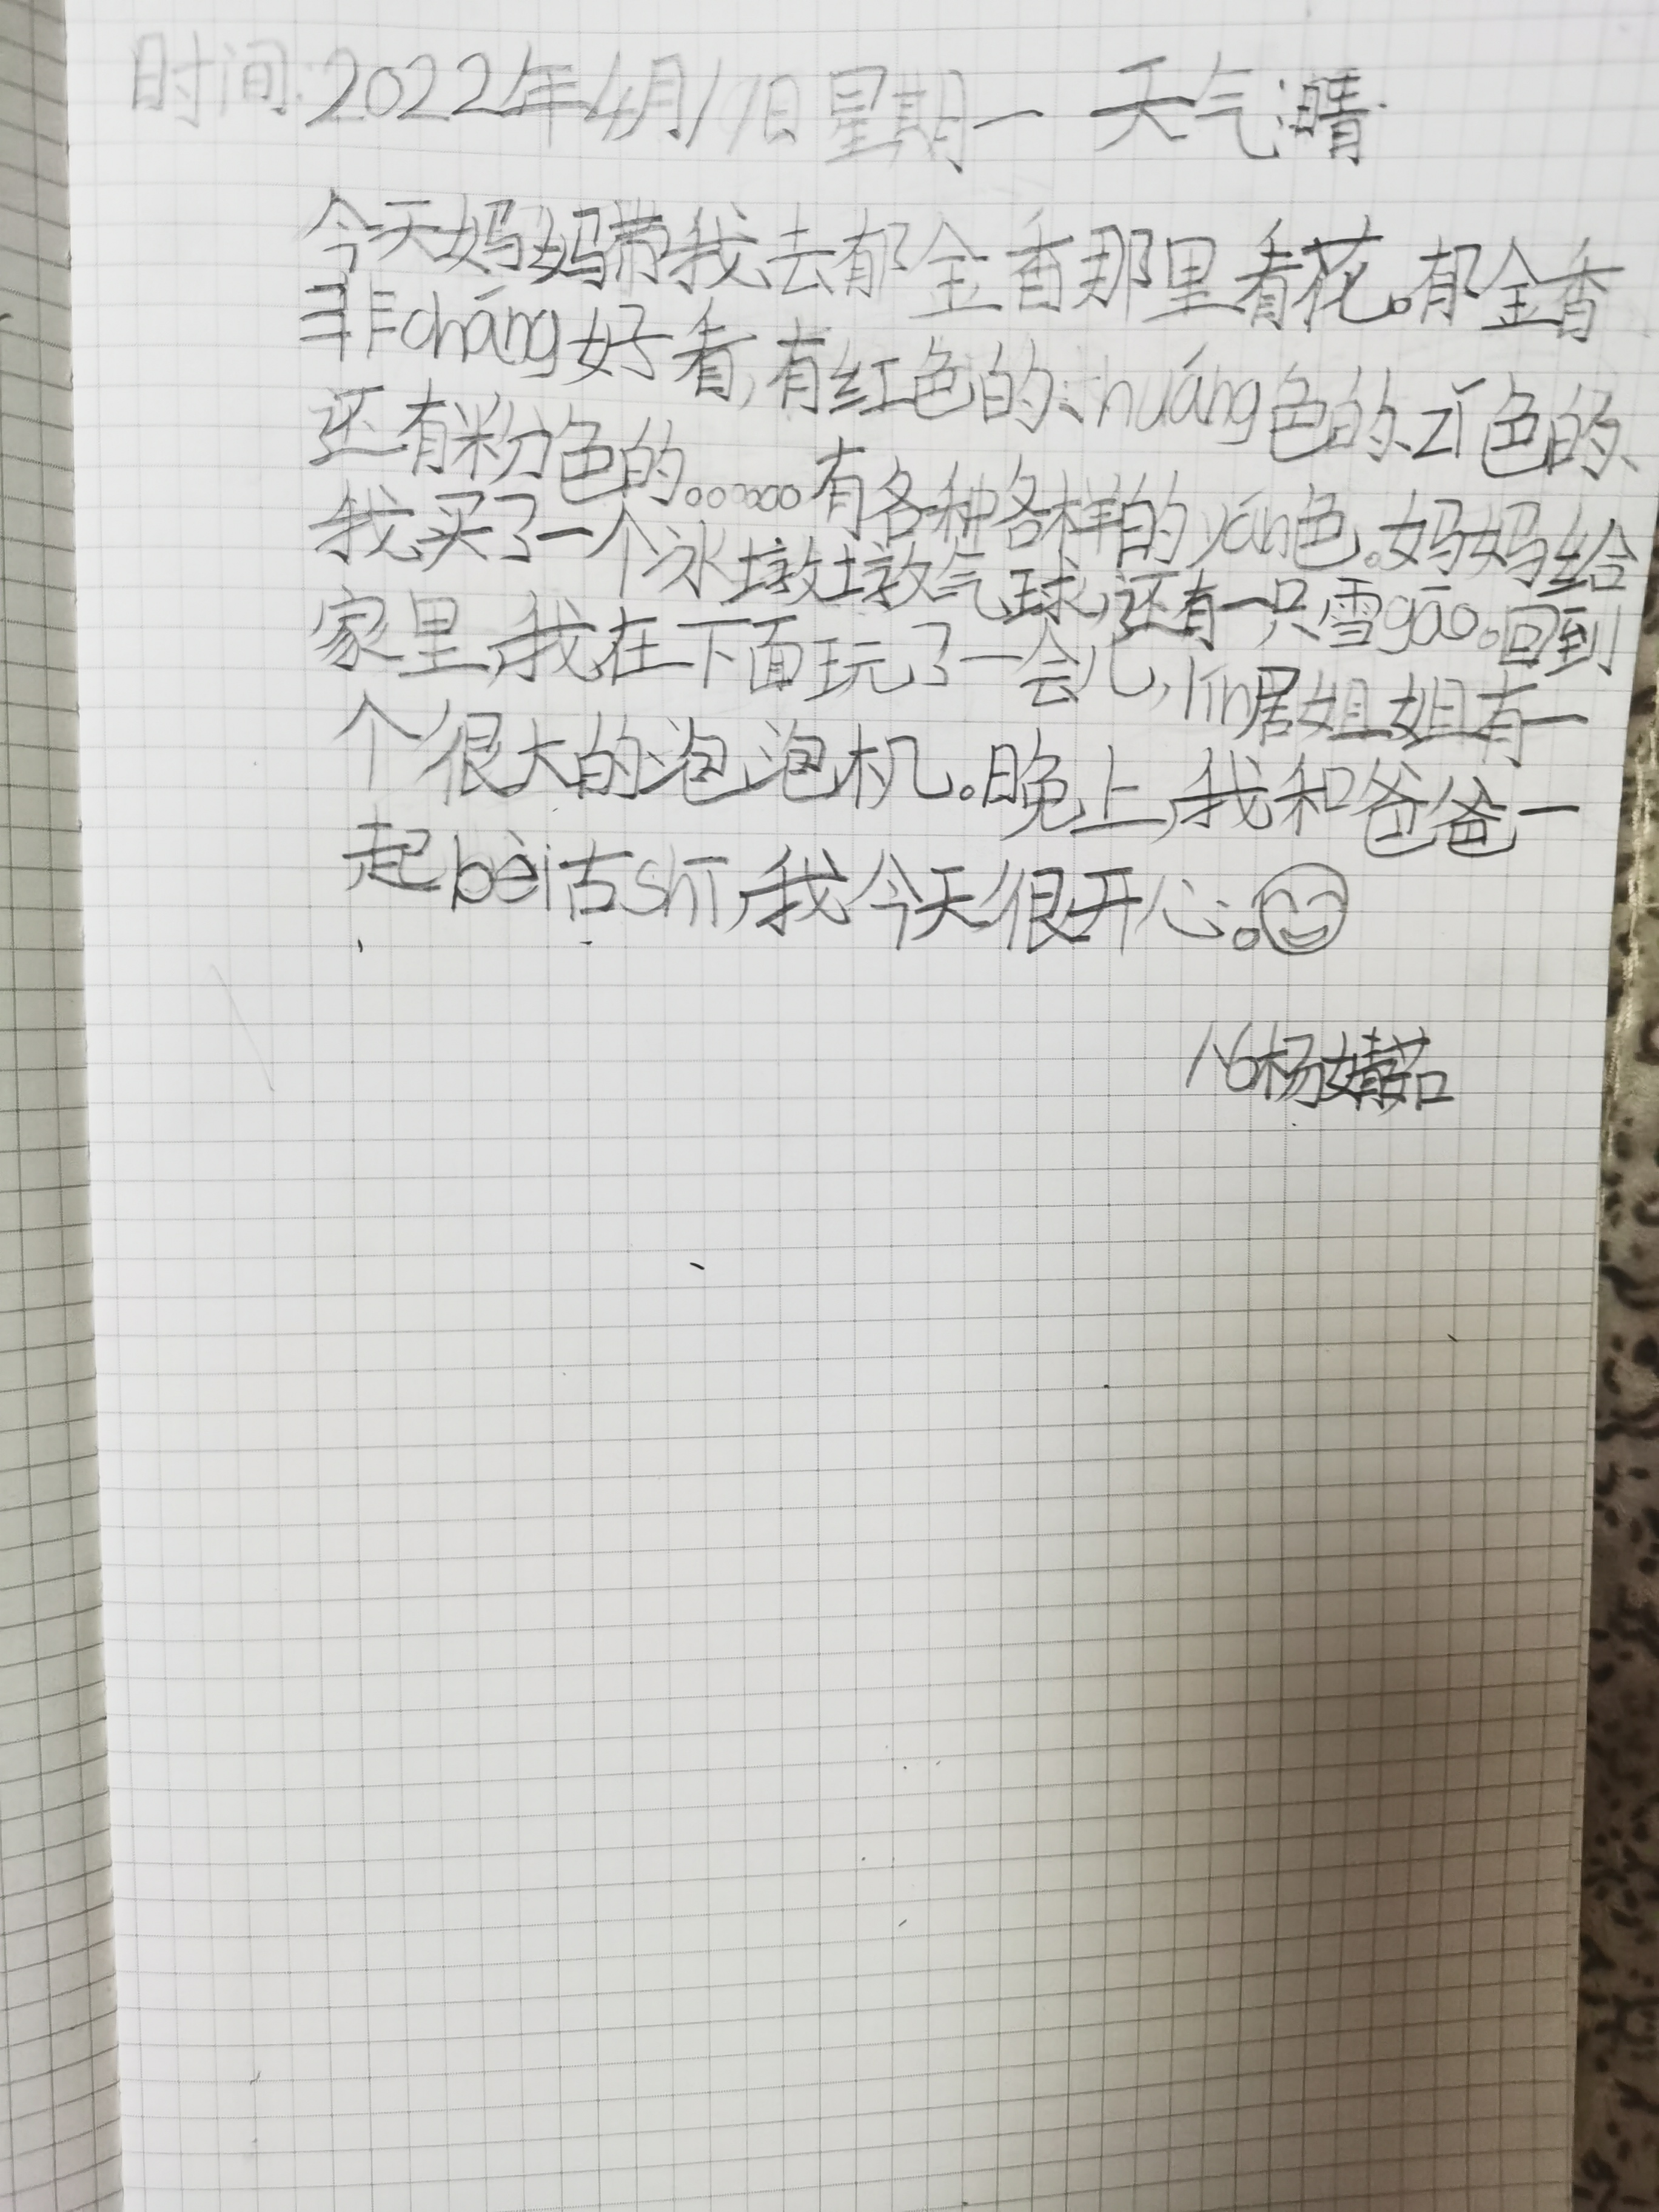 时间:2022年4月17日星期一 天气:晴
今天妈妈带我去郁金香那里看花。郁金香
非cháng好看,有红色的、huáng色的、zǐ色的、
还有粉色的。。。。。。有各种各样的yán色。妈妈给
我买了一个冰墩墩气球,还有一只雪gāo。回到
家里,我在下面玩了一会儿,lín居姐姐有一
个很大的泡泡机。晚上,我和爸爸一
起bèi古shī,我今天很开心。
杨婧茹